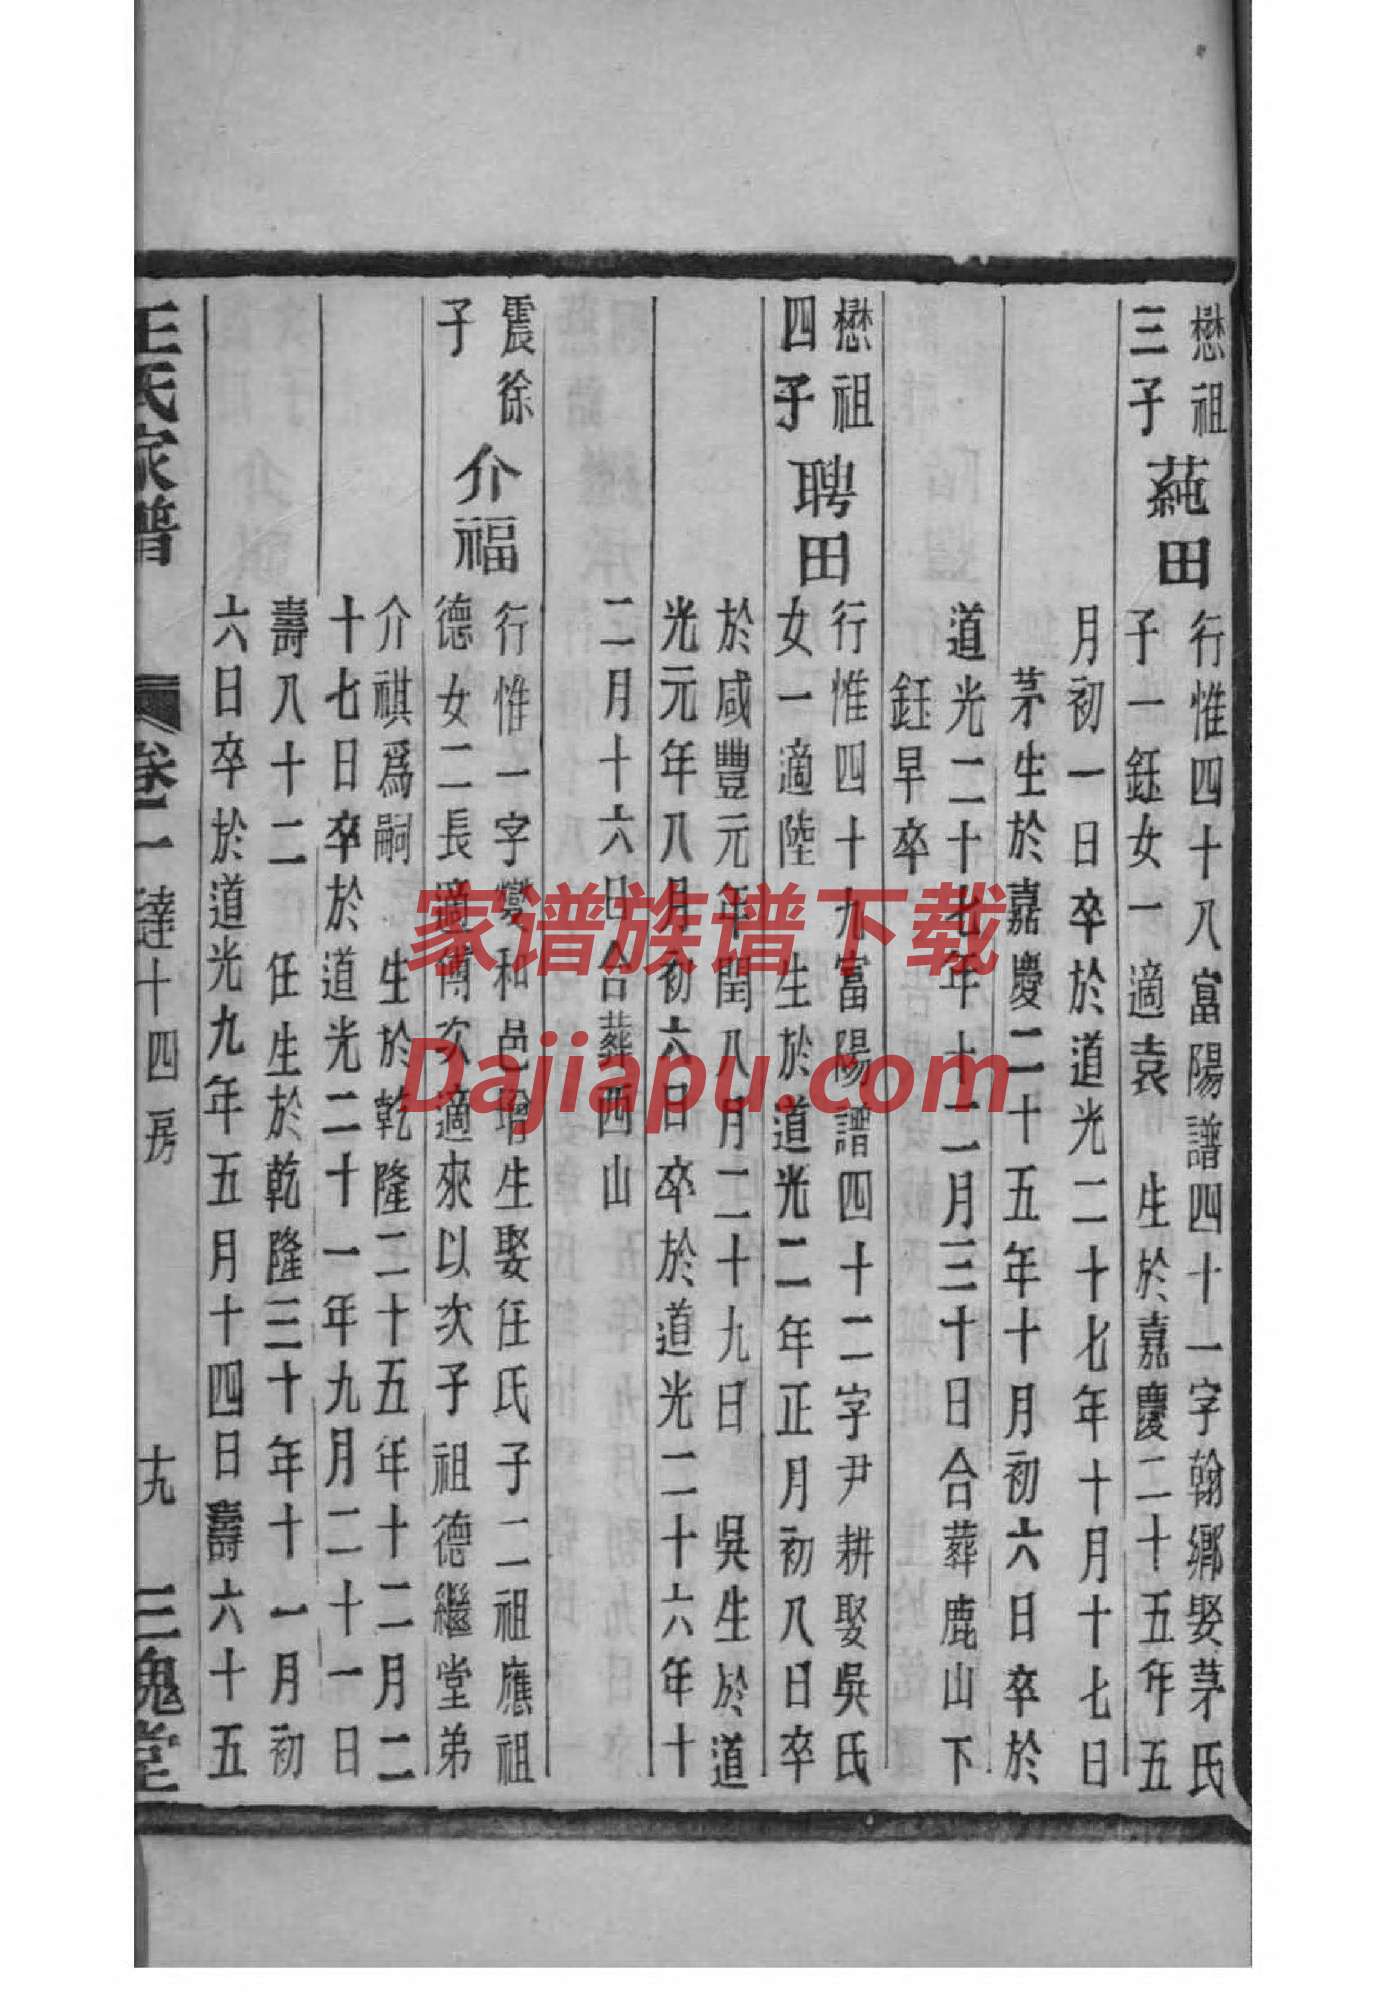 懋祖
三子
蒓田
行惟四十八富陽譜四十一字翰鄉娶茅氏
子一鈺女一適袁 生於嘉慶二十五年五
月初一日卒於道光二十七年十月十七日
茅生於嘉慶二十五年十月初六日卒於
道光二十七年十二月三十日合葬鹿山下
鈺早卒
懋祖
四子
聘田
行惟四十九富陽譜四十二字尹耕娶吳氏
女一適陸 生於道光二年正月初八日卒
於咸豐元年閏八月二十九日 吳生於道
光元年八月初六日卒於道光二十六年十
二月十六日合葬西山
震徐
子
介福
行惟一字燮和邑增生娶任氏子二祖應祖
德女二長適傅次適來以次子祖德繼堂弟
介祺爲嗣 生於乾隆二十五年十二月二
十七日卒於道光二十一年九月二十一日
壽八十二 任生於乾隆三十年十一月初
六日卒於道光九年五月十四日壽六十五
王氏家譜 卷一 達十四房 十九 三槐堂
家谱族谱下载
Dajiapu.com